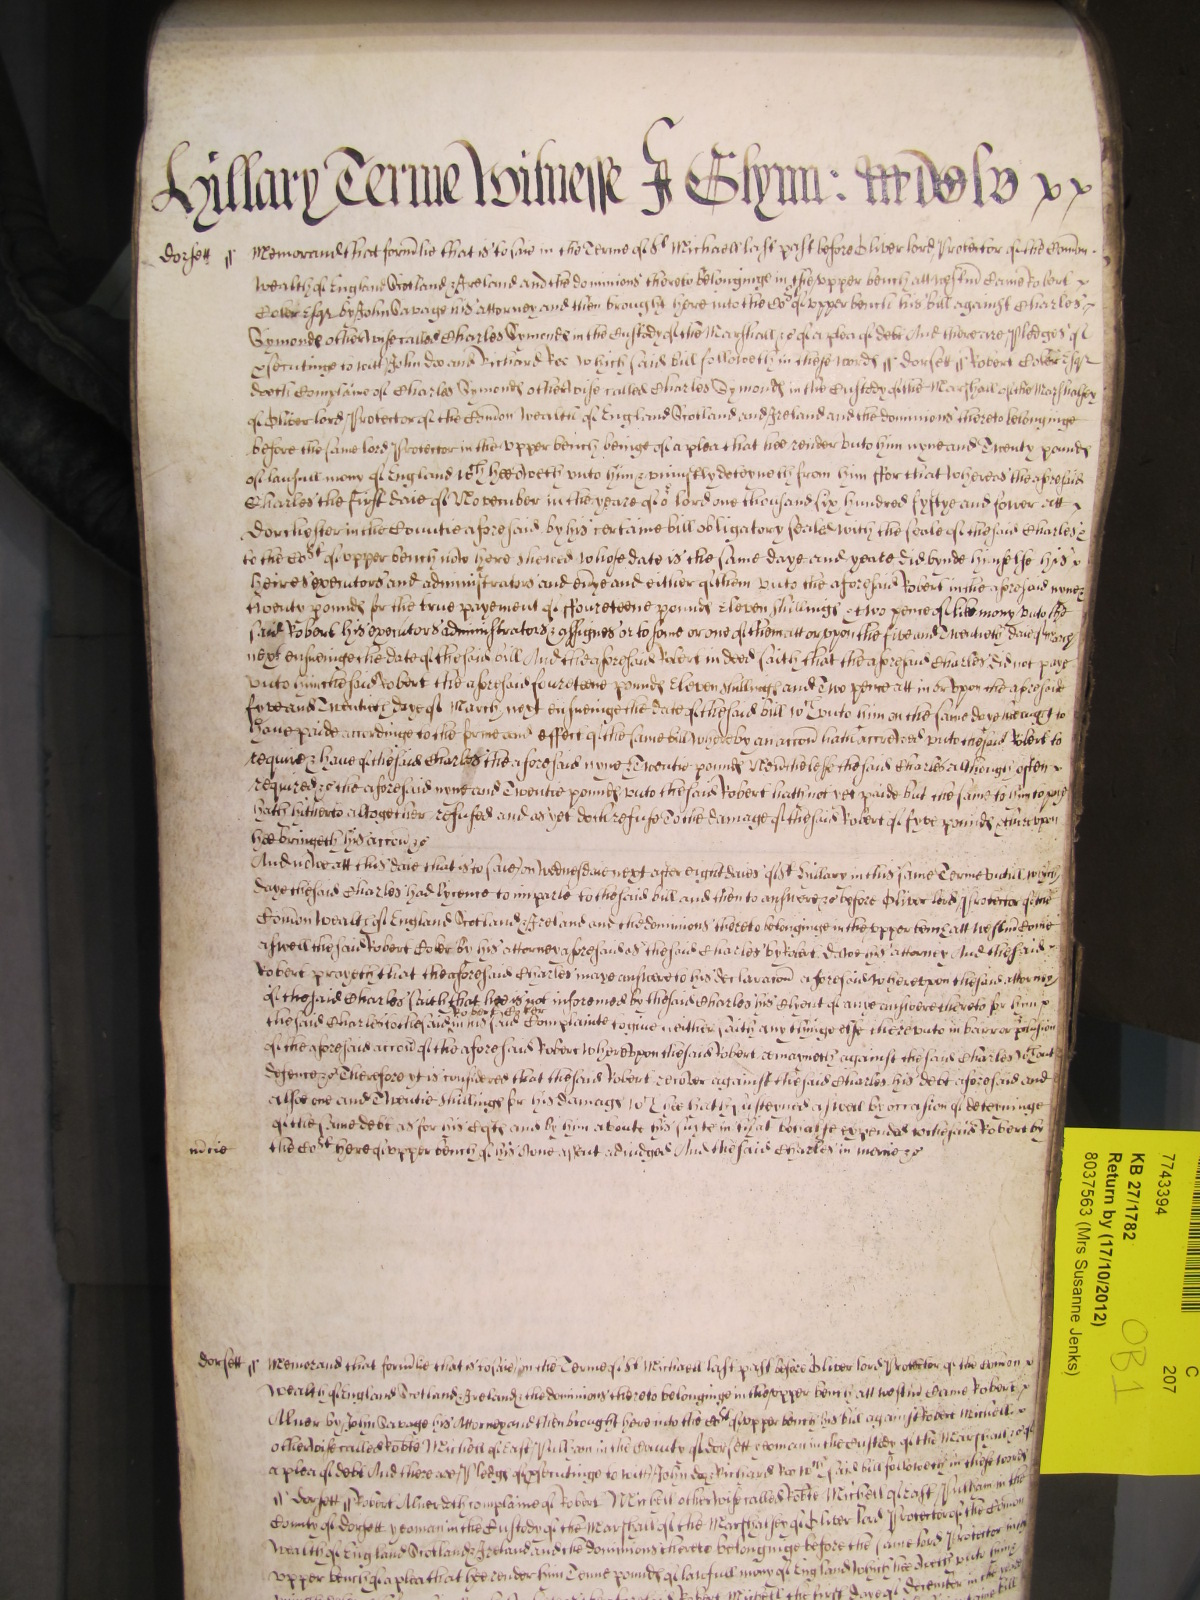 Hillary Terme Witnesse Jo Glynn: MDClv xx
Dorsett ss Memorand that formlie that is to saie in the Terme of St Michaell last past before Oliver lord Protector of the Comon
wealth of England Scotland & Ireland and the dominions thereto belonginge in the upper bench att westm Came Robert
Coker Esqr by John Savage his attorney and then brought here into the Cort of upper bench his bill against Charles
Symonds otherwise called Charles Symonds in the Custody of the Marshall &c of a plea of debt And there are Pledges of
p'secutinge to witt John doo and Richard Roo which said bill followeth in these words ss Dorsett ss Robert Coker Esqr
doeth Complaine of Charles Symonds otherwise called Charles Symonds in the Custody of the Marshall of the Marshalsey
of Oliver lord Protector of the Comon wealth of England Scotland and Ireland and the dominions thereto belonginge
before the same lord Protector in the upper bench beinge of a plea that hee render unto him nyne and Twenty pounds
of lawfull mony of England wch hee oweth unto him & uniustly deteyneth from him ffor that whereas the aforesaid
Charles the First daie of November in the yeare of or lord one thousand six hundred fyftye and fower att
Dorchester in the Countie aforesaid by his certaine bill obligatory sealed with the seale of the said Charles &
to the Cort of upper bench now here shewed whose date is the same daye and yeare did bynde himselfe his
heires executors and administrators and every and either of them unto the aforesaid Robert in the aforesaid nyne &
twenty pounds for the true payement of ffoureteene pounds Eleven shillings & two pence of like mony unto the
said Robert his executors administrators & assignes or to some or one of them att or uppon the five and Twentieth daie of March
next ensueinge the date of the said bill And the aforesaid Robert in deed saith that the aforesaid Charles did not paye
unto him the said Robert the aforesaid foureteene pounds Eleven shillings and Two pence att in or uppon the aforesaid
fyve and Twentieth daye of March next ensueinge the date of the said bill wch unto him on the same daye he ought to
have paide accordinge to the forme and effect of the same bill whereby an accon hath accrewed unto the said Robert to
require & have of the said Charles the aforesaid nyne & Twentie pounds Neverthelesse the said Charles although often
required &c the aforesaid nyne and Twentie pounds unto the said Robert hath not yet paide but the same to him to pay
hath hitherto altogether refused and as yet doth refuse To the damage of the said Robert of fyve pounds & thereupon
hee bringeth his accon &c
And nowe att this daie that is to saie on wednesdaie next after eight daies of St Hillary in this same Terme untill which
daye the said Charles had lycence to imparle to the said bill and then to answere &c before Oliver lord Protector of the
Comon wealth of England Scotland & Ireland and the dominions thereto belonginge in the upper bench att westm Come
aswell the said Robert Coker by his attorney aforesaid as the said Charles by Robert his attorney And the said
Robert prayeth that the aforesaid Charles maye answere to his declaracon aforesaid whereupon the said attorney
of the said Charles saith that hee is not informed by the said Charles his Client of anye answere thereto for him
Robert Coker
the said Charles to the said in his said Complainte to give neither saith any thinge else thereunto in barr or p'clusion
of the aforesaid accon of the aforesaid Robert whereuppon the said Robert remayneth against the said Charles without
defence &c Therefore yt is considered that the said Robert recover against the said Charles his debt aforesaid and
alsoe one and Twentie shillings for his damages wch hee hath susteyned aswell by occasion of deteyninge
of the same debt as for his Costs and by him aboute his suyte in that behalfe expended to the said Robert by
mcie the Cort here of upper bench of his owne assent adiudged And the said Charles in mercie &c
Dorsett ss Memorand that formlie that is to saie in the Terme of St Michaell last past before Oliver lord Protector of the Comon
wealth of England Scotland & Ireland & the dominions thereto belonginge in the upper bench att westm Came Robert
Alner by John Savage his Attorney and then brought here into the Cort of upper bench his bill against Robert Michell
otherwise called Robte Michell of East Pulham in the County of dorsett yeoman in the Custody of the Marshall &c of
a plea of debt And there are Pledges of p'secutinge to witt John doo & Richard Roo wch said bill followeth in these words
ss Dorsett ss Robert Alner doth complaine of Robert Michell otherwise called Robte Michell of East Pulham in the
County of dorsett yeoman in the Custody of the Marshall of the Marshalsey of Oliver lord Protector of the Comon
wealth of England Scotland & Ireland and the dominions thereto belonginge before the same lord Protector in the
upper bench of a plea that hee render him Tenne pounds of lawfull mony of England which hee oweth unto him
Robert Michell the first daye of december in the yeare
C
207
7743394
KB 27/1782
Return by (17/10/2012)
8037563 (Mrs Susanne Jenks)
OB1